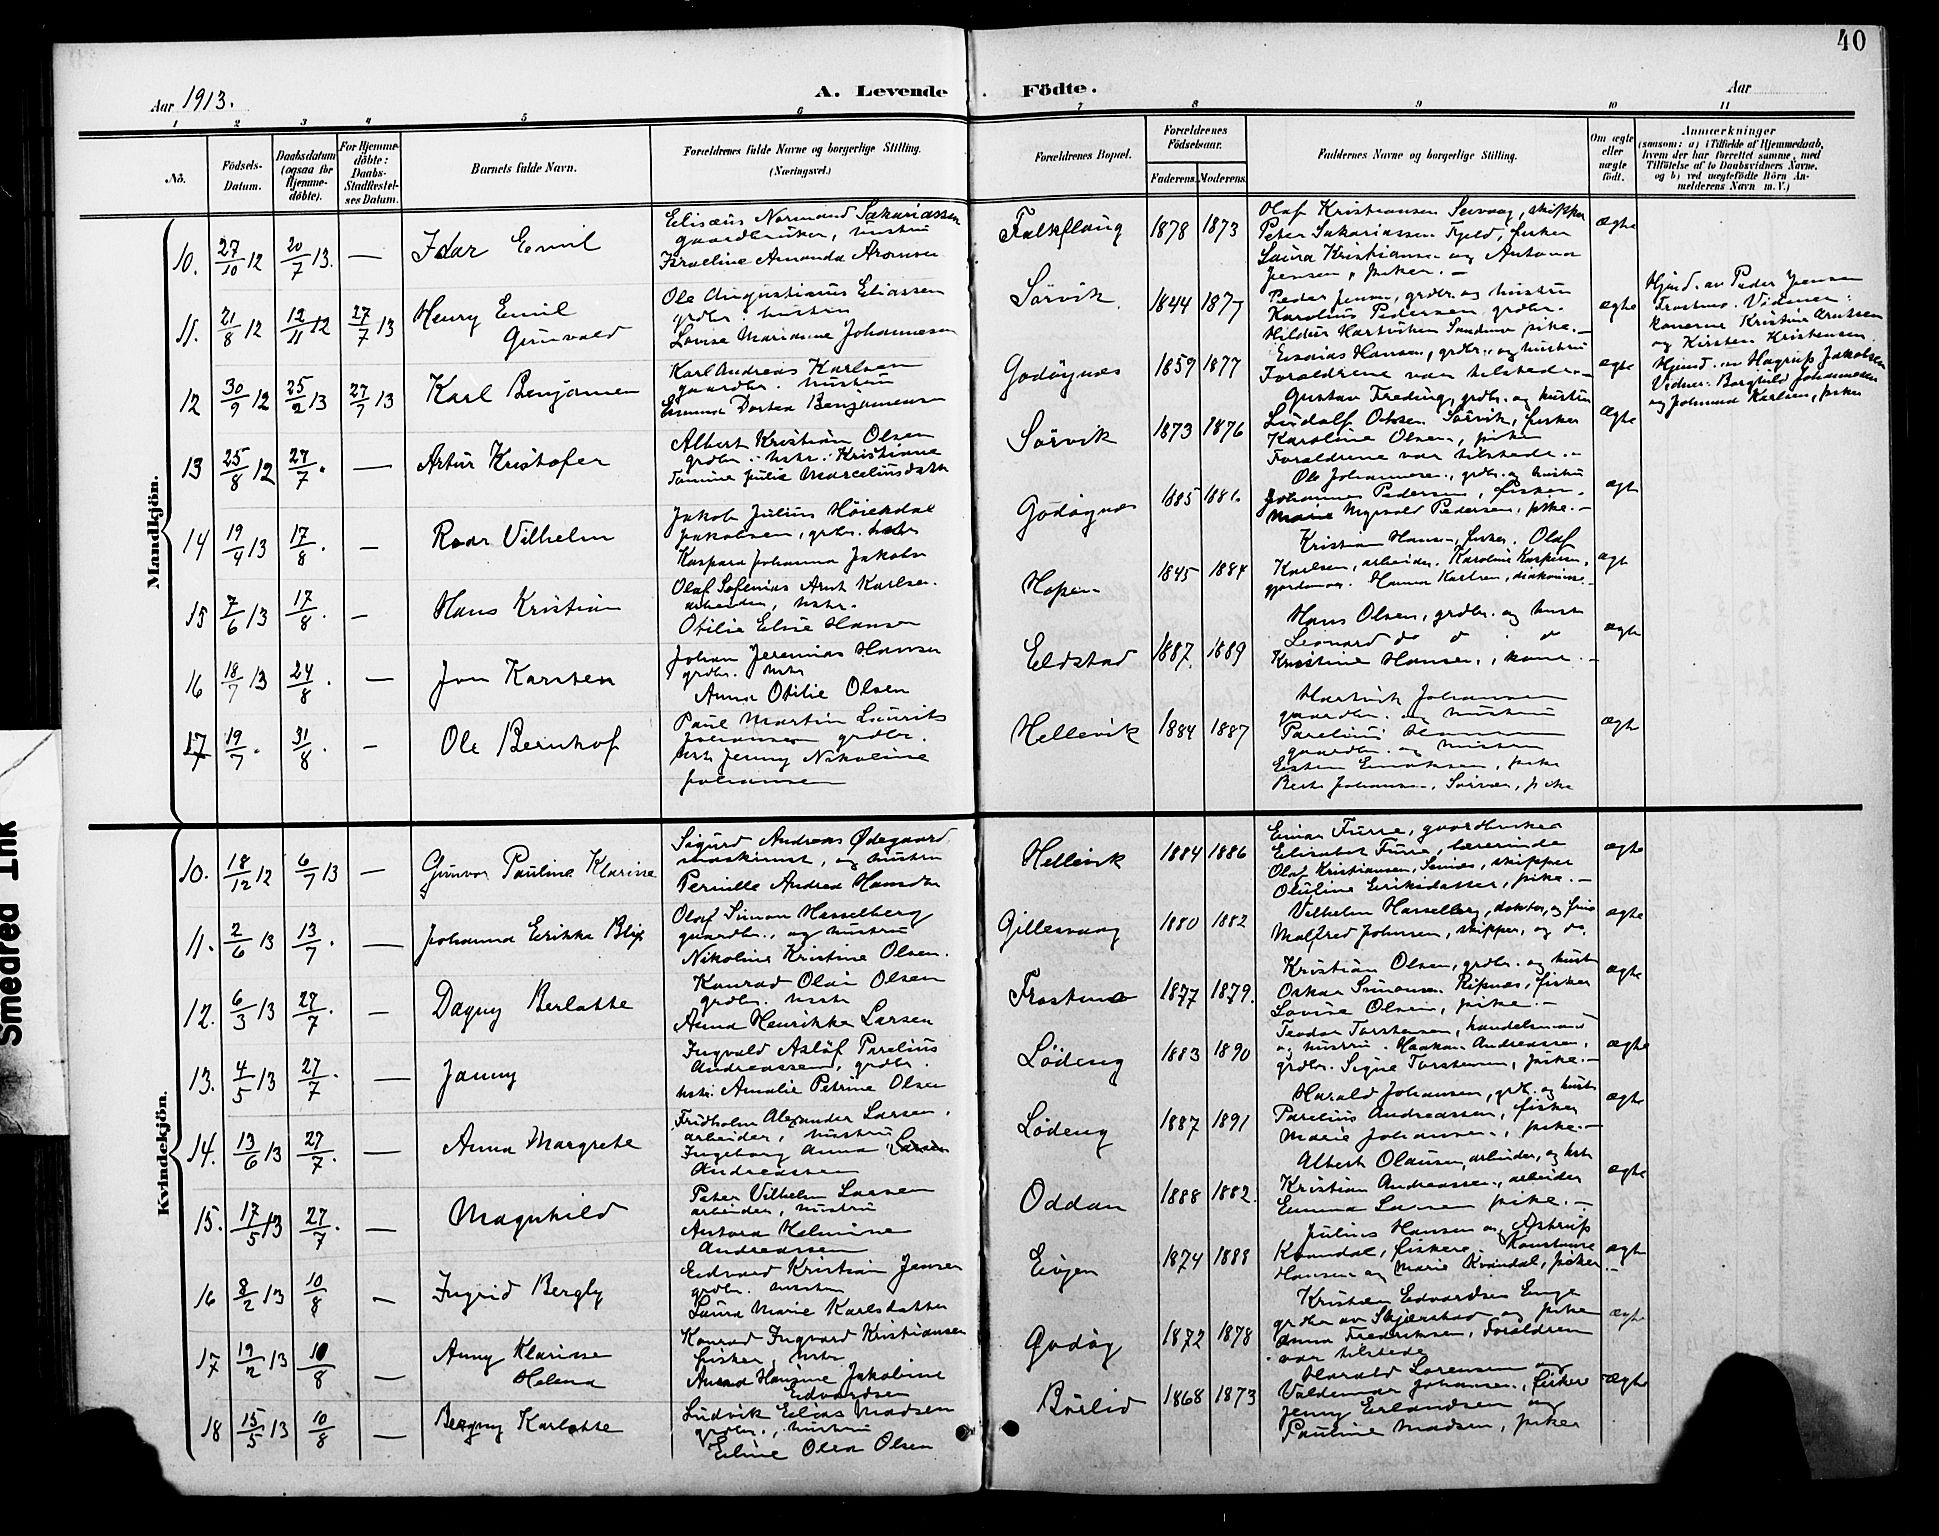 40
Aar 1913.
A. Levende Födte.
Aar
1 2 3 4 5 6 7 8 9 10 11
No.
Födsels-Datum.
Daabsdatum (ogsaa for Hjemmedöbte).
For Hjemmedöbte: Daabs-Stadfæstelses Datum.
Barnets fulde Navn.
Forældrenes fulde Navne og borgerlige Stilling. (Næringsvei.)
Forældrenes Bopæl.
Forældrenes Födselsaar.
Faderens. Moderens.
Faddernes Navne og borgerlige Stilling.
Om ægte eller uægte födt.
Anmærkninger
(saasom: a) i Tilfælde af Hjemmedaab, hvem der har forrettet samme, med Tilföielse af to Daabsvidners Navne, og b) ved uægtefödte Börn Anmelderens Navn m. V.)
Mandkjön.
10. 27/10 12 20/7 13. — Idar Emil
Elisæus Normand Sakariassen
gaardbruker, hustru
Israeline Amanda Aronsen
Falkflaug 1878 1873
Olaf Kristiansen Seivaag, skipper
Peter Sakariassen Fjeld, fisker
Laura Kristiansen og Antona
Jensen, piker. —
ægte
11. 21/8 12 12/11 12 27/7 13 Henry Emil
Gunvald
Ole Augustinus Eliassen
grdbr. hustru
Lovise Marianne Johannesen
Sörvik 1844 1877
Peder Jensen, grdbr. og hustru
Karolius Pedersen grdbr.
Hildur Hartviksen Sandmo pike. —
ægte
Hjmd. av Peder Jensen
Frostmo. Vidner:
konerne Kristine Arntsen
og Kirsten Kristensen
12 30/9 12 25/2 13 27/7 13 Karl Benjamen
Karl Andreas Karlsen
gaardbr. hustru
Emma Dortea Benjamensen
Godöynes 1859 1877
Esaias Hansen, grdbr. og hustru
Foraldrene var tilstede. —
ægte
Hjmd. av Hagrup Jakobsen
Vidner: Borghild Johannesen
og Johanna Karlsen, piker
13 25/8 12 27/7. — Artur Kristofer
Albert Kristian Olsen
grdbr. hstr. Kristiane
Tomine Julie Marceliusdatter
Sörvik 1873 1876
Gustav Freding, grdbr. og hustru
Ludolf Olsen Sörvik, fisker
Karoline Olsen, pike
Foraldrene var tilstede. —
ægte
14 19/4 13 17/8. — Roar Vilhelm
Jakob Julius Höiekdal
Jakobsen, grdbr. hstr
Kaspara Johanna Jakobs
Godöynes 1885
Ole Johannesen, grdbr. og hustru
Johannes Pedersen, fisker.
Marie Nygvold Pedersen, pike. —
ægt
15 7/6 13 17/8. — Hans Kristian
Olaf Sofenias Arnt Karlsen.
arbeider, hstr.
Otilie Elise Hansen
Hopen 1845 1884
Kristian Hansen, fisker. Olaf
Karlsen, arbeider. Karoline Kaspersen,
gjordemor. Hanna Karlsen, diakonisse. —
ægt
16 18/7 13 24/8. — Jon Karsten
Johan Jeremias Hansen
grdbr. hstr
Anna Otilie Olsen
Eldstad 1887. 1889
Hans Olsen, grdbr. og hust
Leonard do o o
Kristine Hansen, kone. —
ægte
17 19/7. 31/8. — Ole Bernhof
Paul Martin Laurits
Johansen grdbr.
hstr Jenny Nikoline
Johansen
Hellevik 1884 1887
Hartvik Johansen
gaardbr. og hustru
Parelius
gaardbr. og hustru
pike
Johansen, pike
ægte
Kvindekjön.
10. 18/12 12 6/7 13 — Gunvor Pauline Klarisse
Sigurd Andreas Ødegaard
maskinist, og hustru
Pernille Andrea Hansdtr
Hellevik 1884 1886
Einar Furre, gaardbruker
Elisabet Furre, lærerinde
Olaf Kristiansen, Seines, skipper
Oluline Eriksdatter, pike. —
ægte
11. 2/6 13 13/7. — Johanna Erikka Blix
Olaf Simon Hasselberg
gaardbr., og hustru
Nikoline Kristine Olsen.
Gillesvaag 1880 1882
Vilhelm Hasselberg, doktor, og frue
Malfred Johnsen, skipper, og do.
ægte
12. 6/3 13 27/7. — Dagny Berlotte
Konrad Olai Olsen
grdbr. hstr
Anna Henrikke Larsen
Frostmo 1877 1879.
Kristian Olsen, grdbr. og hust
Oskar Simonsen Ripnes, fisker
Lovise Olsen, pike. —
ægte
13. 4/5 13 27/7. — Janny
Ingvald Aslöf Parelius
Andreassen, grdbr.
hstr. Amalie Petrine Olsen
Lödeng 1883 1890
Teodor Torstensen, handelsmand
og hustru. Haakon Andreassen,
grdbr. Signe Torstensen, pike. —
ægte
14. 13/6 13 27/7. — Anna Margrete
Fridholm Alexander Larsen,
arbeider, hustru
Ingeborg Anna Larsen
Andreassen
Lödeng 1887 1891
Harald Johansen, grdb. og hust
Parelius Andreassen, fisker
Marie Johansen, pike. —
ægte
15. 17/5 13 27/7. — Magnhild
Peter Vilhelm Larsen
arbeider, hustru
Antora Helmine
Andreassen
Oddan 1888 1882.
Albert Olausen, arbeider, og hstr
Kristian Andreassen, arbeider
Emma Larsen pike. —
ægte
16 8/2 13 10/8 — Ingrid Bergly
Edvard Kristian Jensen
grdbr. hustru
Laura Marie Karlsdatter
Evjen 1874 1883
Julius Hansen og Astrup
Kvandal, fiskere. Konstanse
Hansen og Marie Kvandal, piker
ægte
17 19/2 13 10/8 — Anny Klarisse
Helena
Konrad Ingvard Kristiansen
fisker, hstr
Anna Hansine Jakobine
Edvardsen
Godöy 1872 1878
Kristian Edvardsen Enge
grdbr av Skjerstad og pike
Anna Fredriksen, Foraldren
var tilstede
ægte
18 15/5 13 10/8 — Bergny Karlotte
Ludvik Elias Madsen
grdbr., hustru
Eline Olea Olsen
Börlid 1868 1873
Harald Sorensen og
Valdemar Johansen, fiskere
Jenny Erlandsen og
Pauline Madsen, piker
ægte
Smedred Ink